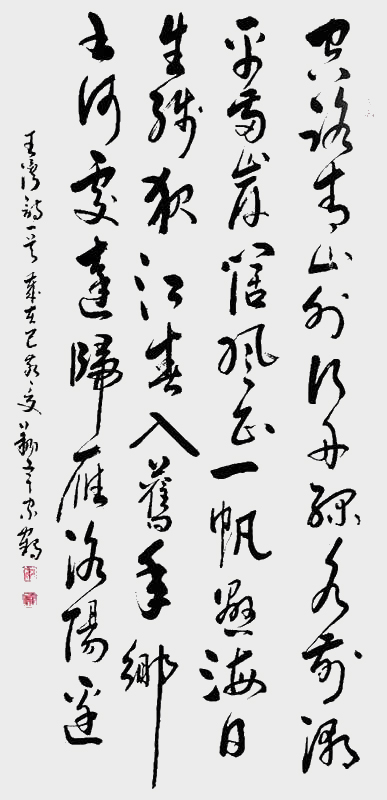 客路青山外行舟綠水前潮
平兩岸闊風正一帆懸海日
生殘夜江春入舊年鄉
書何處達歸雁洛陽邊
王灣詩一首歲在己亥